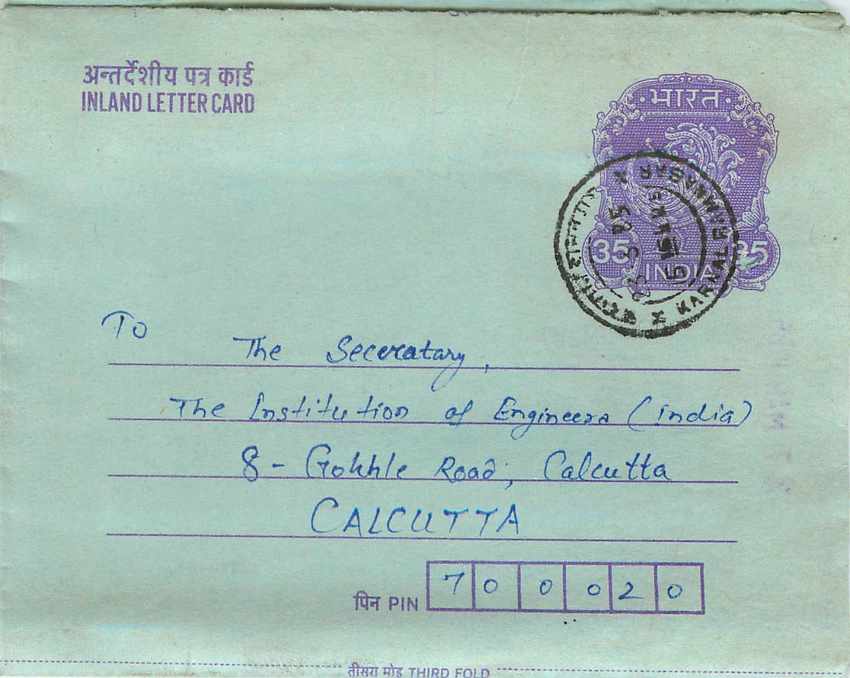 अन्तर्देशीय पत्र कार्ड
INLAND LETTER CARD
भारत
35 35
INDIA
KARNAL R.MNAGAR
To
The Seceratary,
The Institution of Engineers (india)
8 - Gokhle Road, Calcutta
CALCUTTA
पिन PIN 7 0 0 0 2 0
तीसरा मोड़ THIRD FOLD